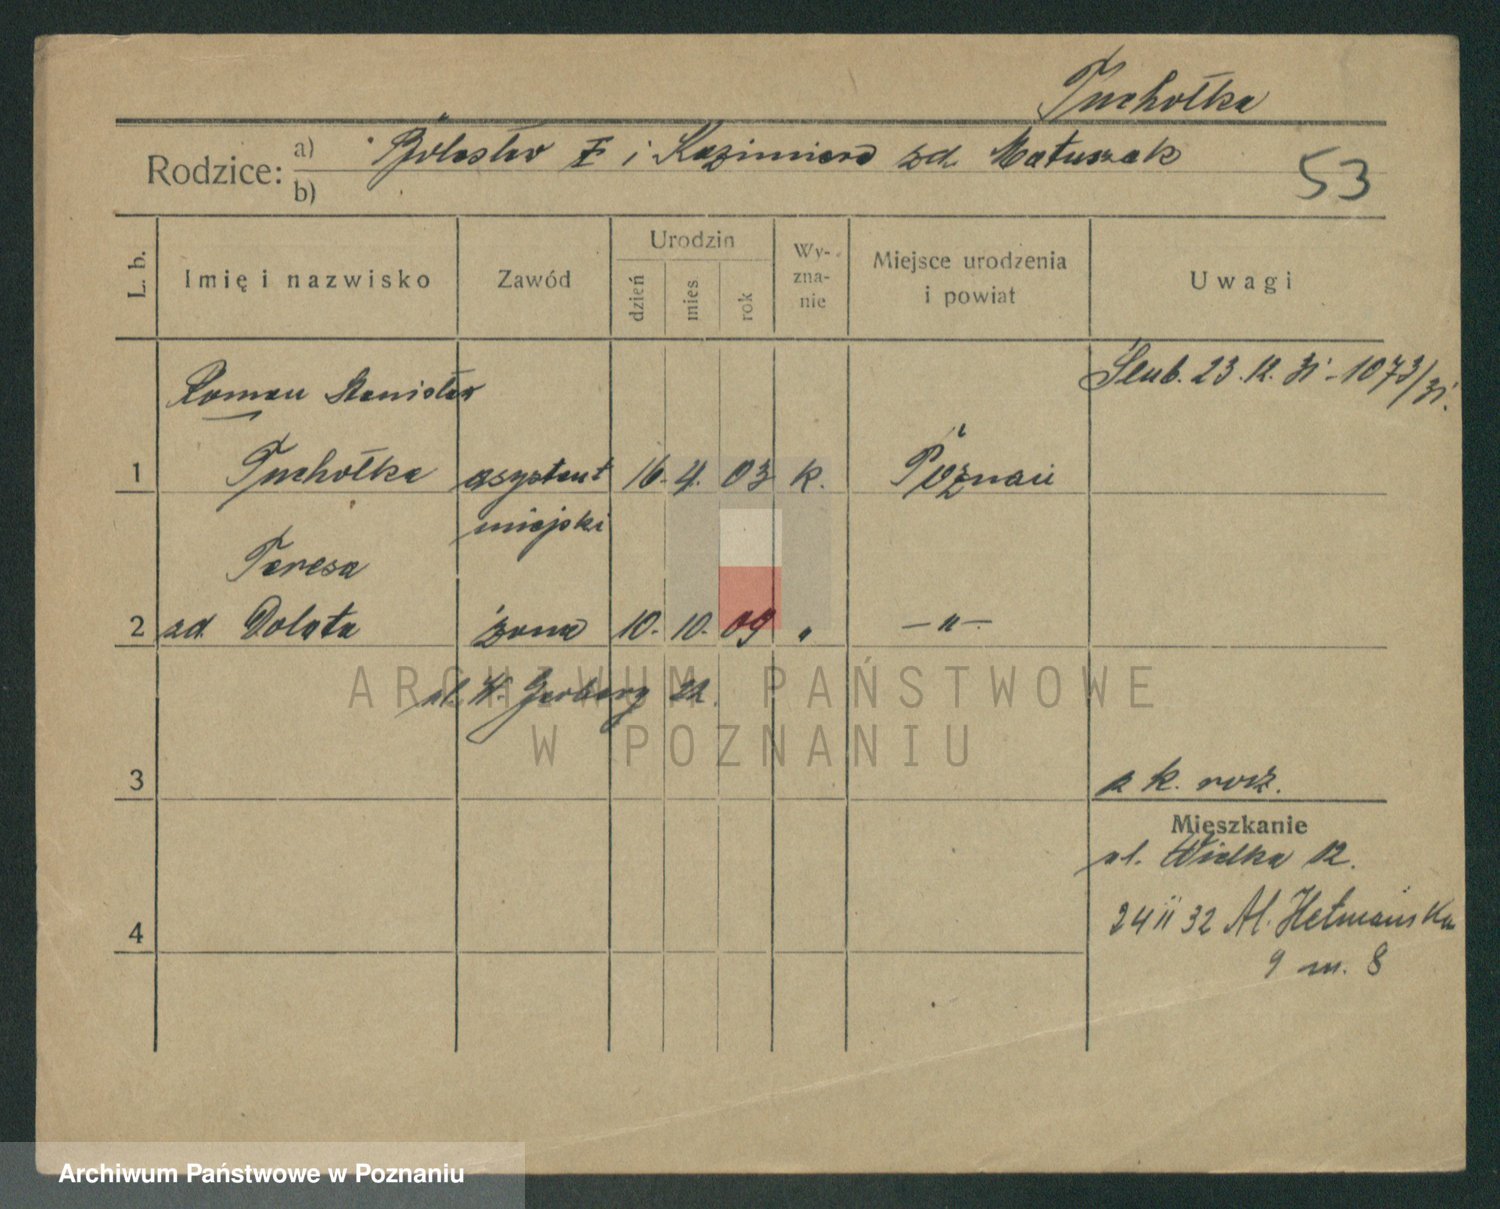 Tuchołka
Rodzice: a) Bolesław T i Kazimiera zd. Matuszak
b)
53
L. b.
Imię i nazwisko
Zawód
Urodzin
dzień
mies.
rok
Wy-
zna-
nie
Miejsce urodzenia
i powiat
Uwagi
Ślub. 23.12.31 - 1073/31.
Roman Stanisław
1 Tuchołka asystent 16. 4. 03 k. Poznań
miejski
Teresa
2 zd. Dolata żona 10. 10. 09 " -"-
ul. W. Garbary 22.
3
z k. rodz.
Mieszkanie
ul. Wielka 12.
24 II 32 Al. Hetmańska
9 m. 8
4
ARCHIWUM PAŃSTWOWE
W POZNANIU
Archiwum Państwowe w Poznaniu